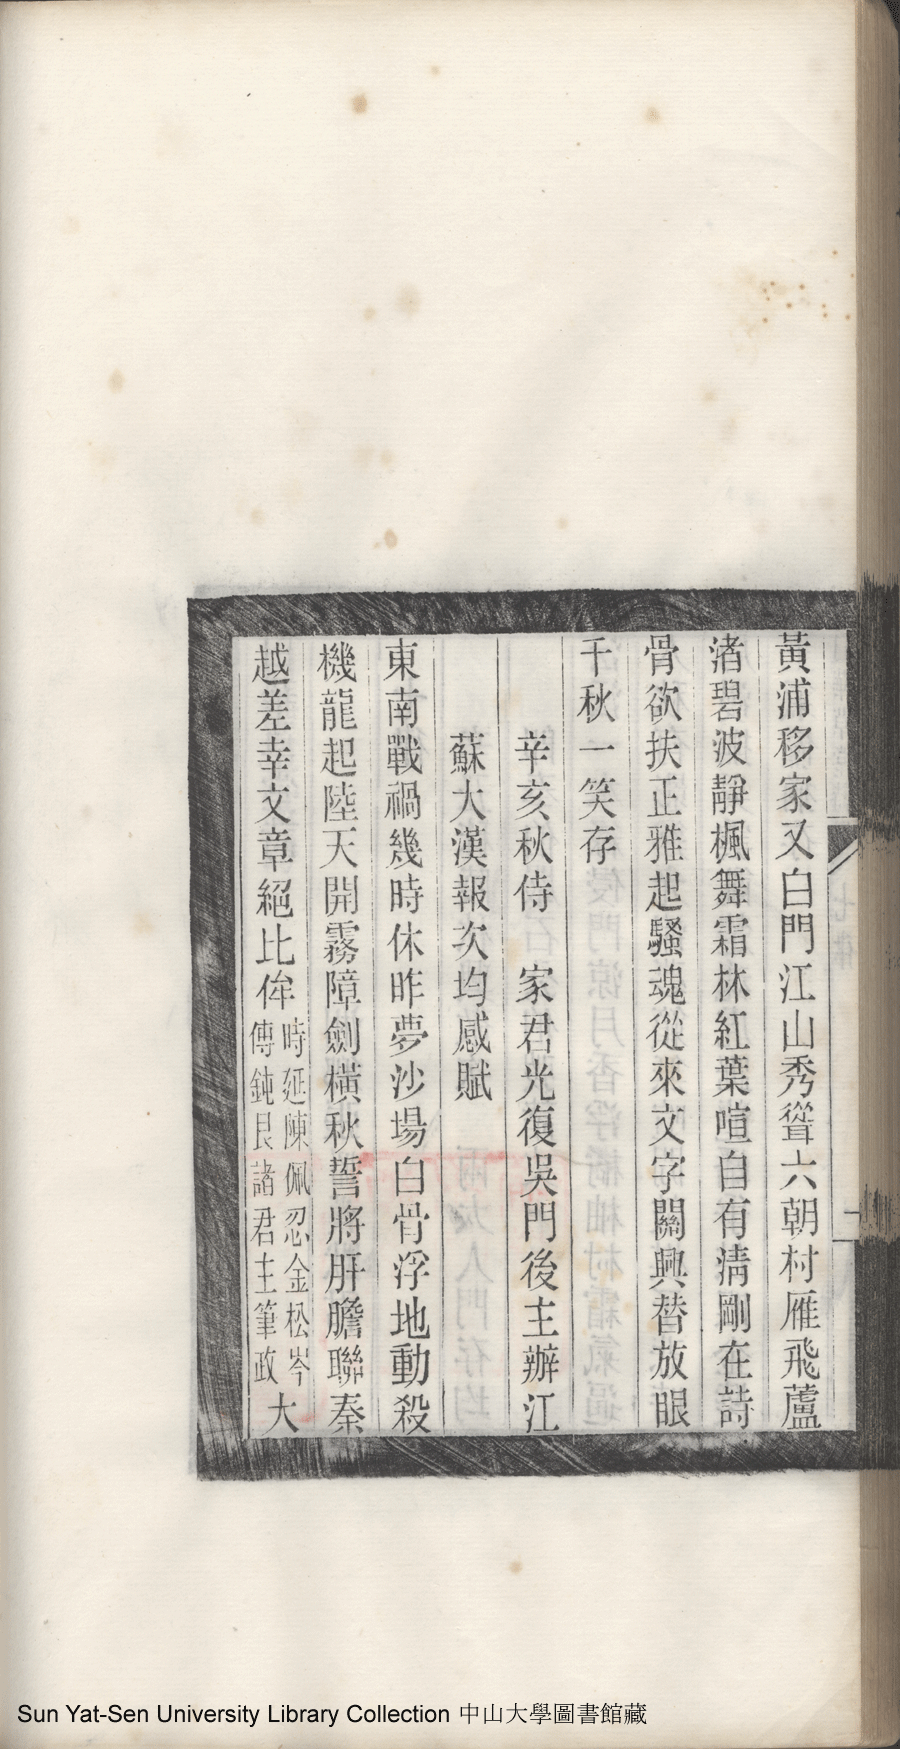 黃浦移家又白門江山秀聳六朝村雁飛蘆
渚碧波靜楓舞霜林紅葉喧自有淸剛在詩
骨欲扶正雅起騷魂從來文字關興替放眼
千秋一笑存
辛亥秋侍　家君光復吳門後主辦江
蘇大漢報次均感賦
東南戰禍幾時休昨夢沙場白骨浮地動殺
機龍起陸天開霧障劍橫秋誓將肝膽聯秦
越差幸文章絕比侔時延陳佩忍金松岑傅鈍艮諸君主筆政大
Sun Yat-Sen University Library Collection 中山大學圖書館藏